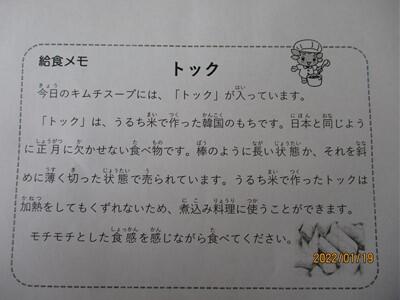 給食メモ
トック
今日のキムチスープには、「トック」が入っています。
「トック」は、うるち米で作った韓国のもちです。日本と同じよう
に正月に欠かせない食べ物です。棒のように長い状態か、それを斜
めに薄く切った状態で売られています。うるち米で作ったトックは
加熱をしてもくずれないため、煮込み料理に使うことができます。
モチモチとした食感を感じながら食べてください。
2022/01/19